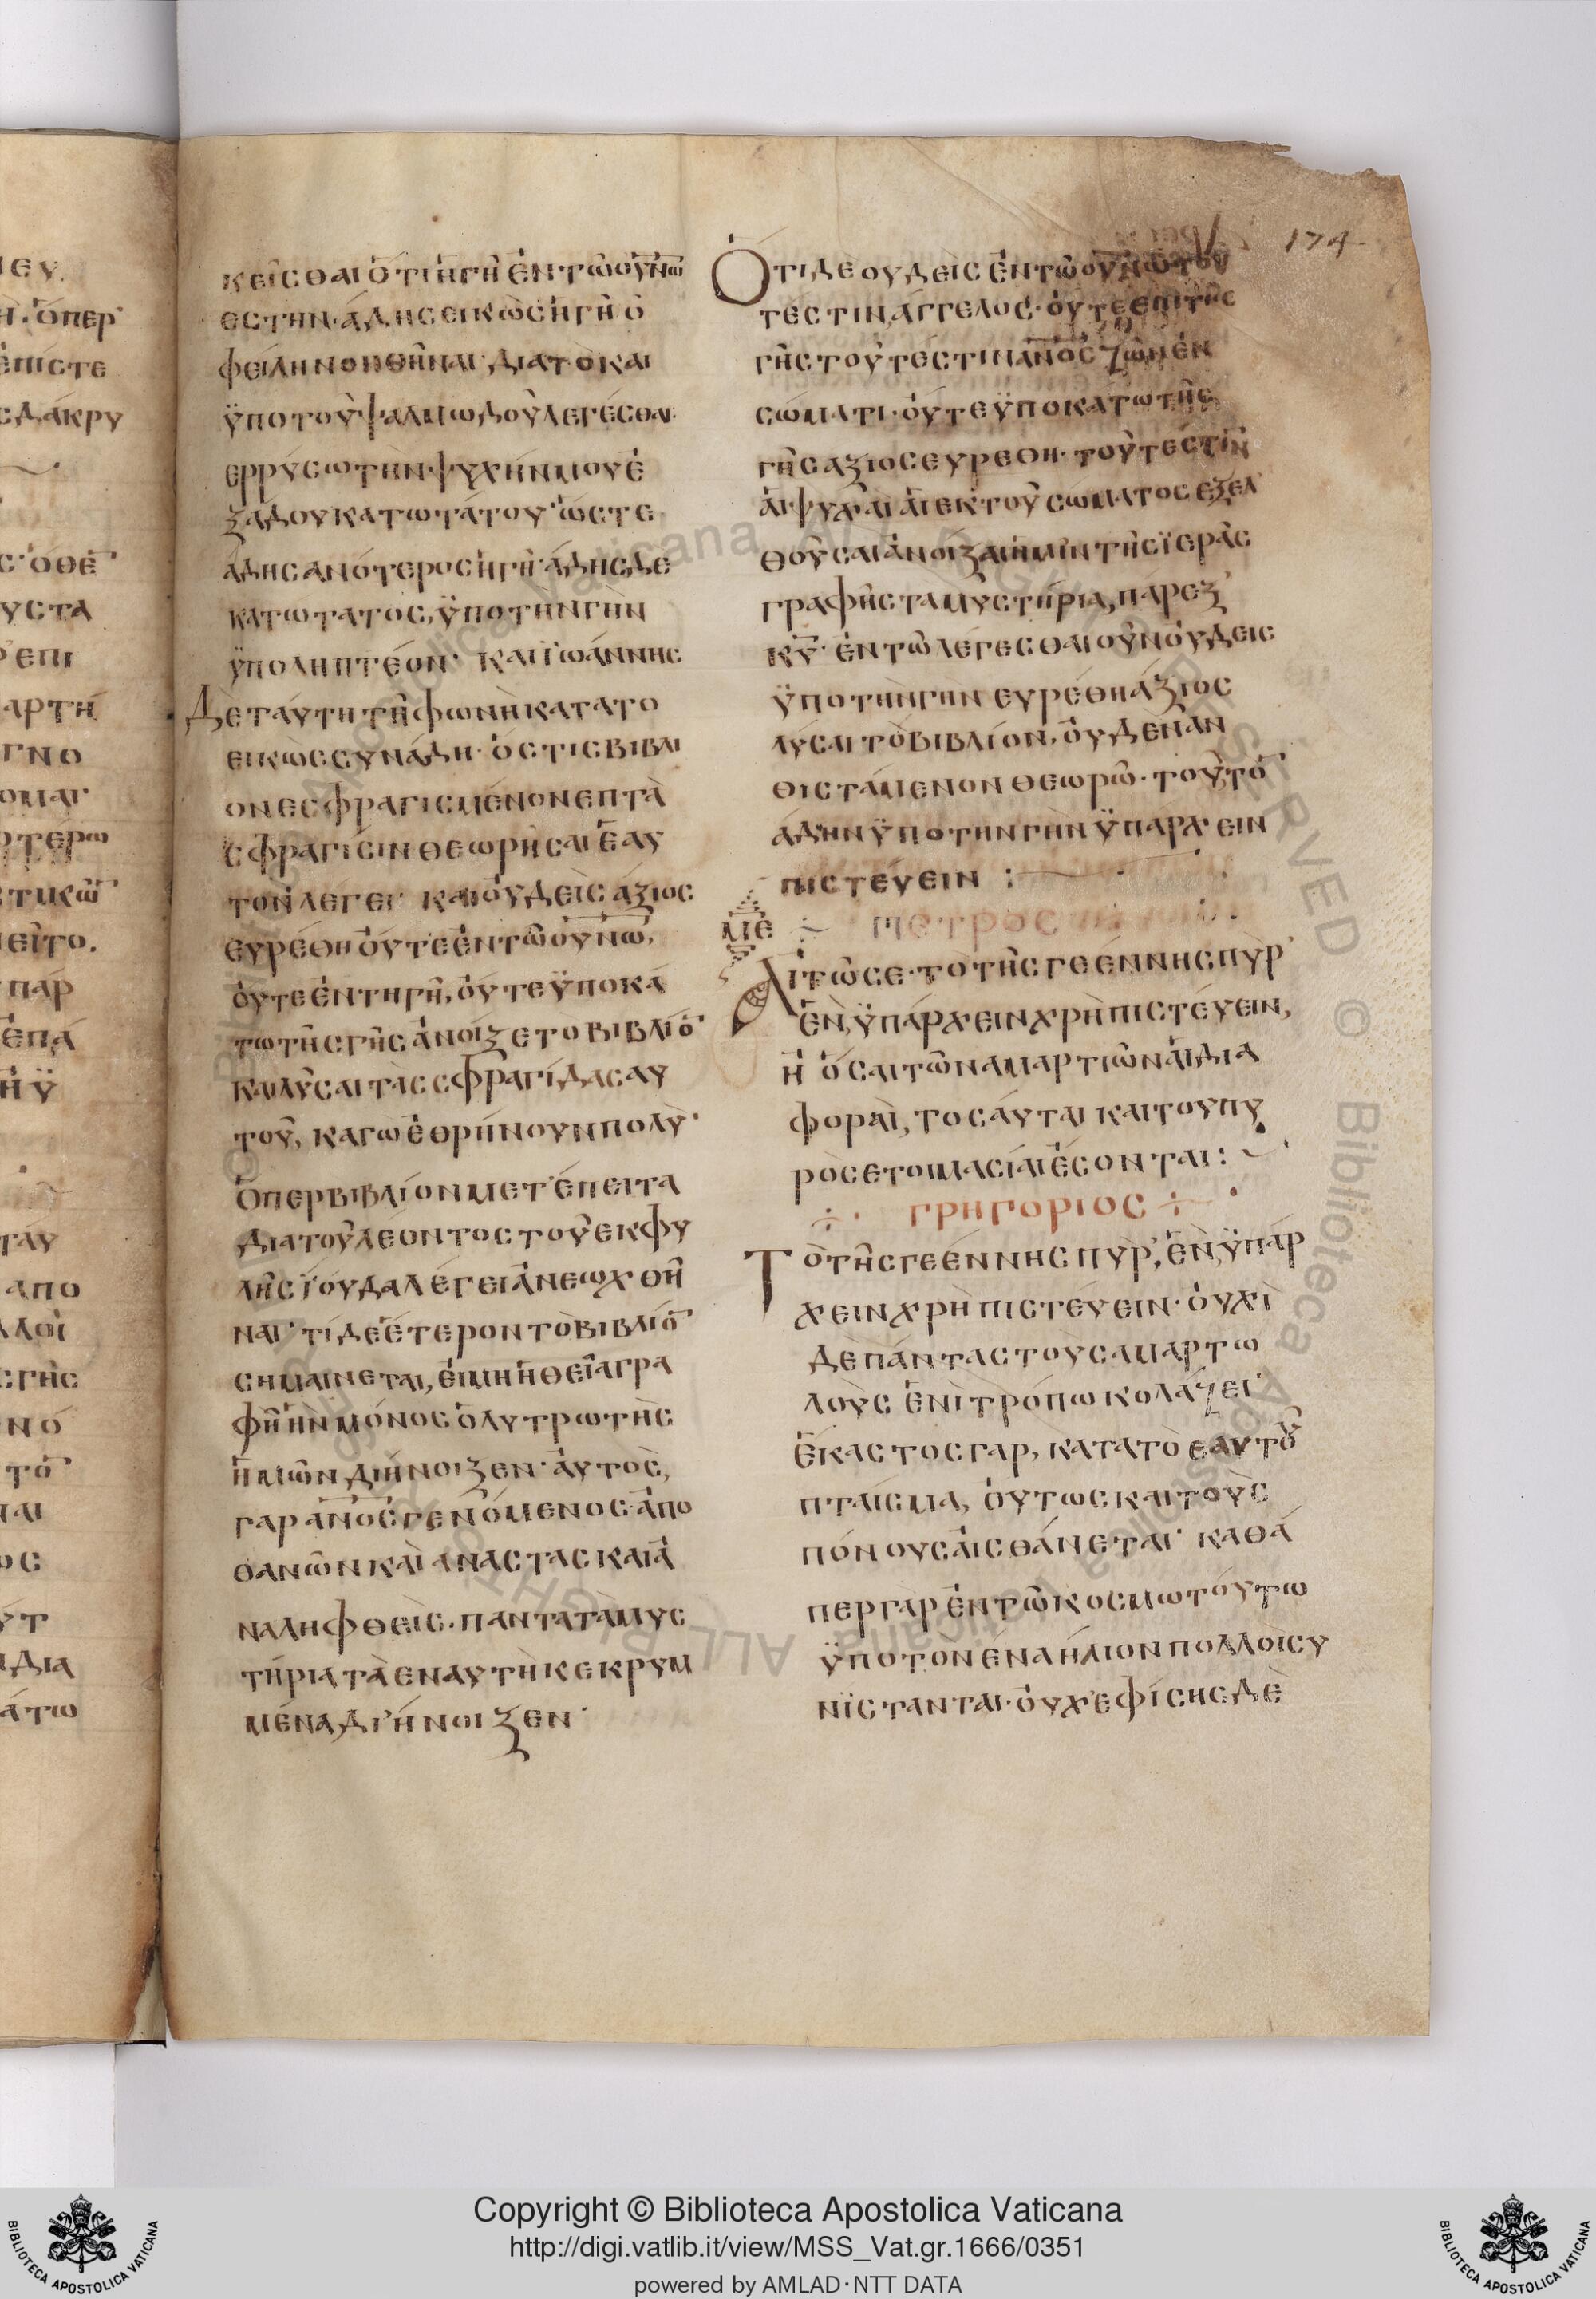 174
κεῖσθαι ὅτι ἡ γῆ ἐν τῶ οὐνω
ἐστην· ἅδης εἰκὼς ἡ γῆ ὀ
φείλη νοηθῆναι· διατὸ και
ϋπο τοῦ ψαλμωδοῦ λεγέσθαι·
ερρύσω τὴν ψυχήν μου ἐ
ξ ἅδου κατωτάτου· ὥστε
ἅδης ανότερος ἡ γῆ· ἅδης δε
κατωτατος, ϋπο την γὴν
ϋποληπτέον· και ϊωάννης
Δὲ ταύτη τῆ φωνὴ κατα το
εικὼς συνάδη· ὅστις βιβλι
ον εσφραγισμένον επτὰ
σφραγίσιν θεωρῆσαι ἑαυ
τὸν λέγει· και οὐδεὶς ἄξιος
ευρέθη οὔτε ἐν τῶ οὐνω,
οὔτε ἐν τη γῆ, οὔτε ϋποκά
τω τῆς γῆς ἀνοίξε το βιβλίο
και λῦσαι τὰς σφραγίδας αυ
τοῦ, καγὼ ἐθρήνουν πολὺ·
Ὅπερ βιβλίον μετέπειτα
δια τοῦ λέοντος τοῦ εκ φυ
λῆς ϊούδα λέγει ἀνεωχθῆ
ναι· τί δε ἕτερον τὸ βιβλίο
σημαίνεται, εἰ μὴ ἡ θεῖα γρα
φὴ ἣν μόνος ὁ λυτρωτὴς
ἡμῶν διήνοιξεν· ἀυτὸς,
γαρ ανος γενόμενος· ἀπο
θανῶν καὶ αναστας και ἀ
ναληφθεὶς· παντα τὰ μυσ
τήρια τὰ εν αυτὴ κεκρυμ
μένα διήνοιξεν·
Ὅτι δε ουδεὶς ἐν τῶ ουνω του
τέστιν ἄγγελος· οὔτε επι τῆς
γῆς τοῦτέστιν ανος ζῶν ἐν
σώματι· οὔτε ϋποκάτω τῆς
γῆς αξιος ευρεθη· τοῦτεστὶν
ἁι ψυχαὶ ἁι εκ τοῦ σώματος εξελ
θοῦσαι ἀνοιξαι ἡμῖν τῆς ϊερᾶς
γραφῆς τα μυστήρια, πάρεξ
κυ· ἐν τῶ λέγεσθαι οῦν ὀυδεις
ϋπο τὴν γην ευρέθη ἄξιος
λύσαι τὸ βιβλίον, ὀυδεν αν
θιστάμενον θεωρῶ· τοῦτό
ἅδην ϋπο την γην ϋπάρχειν
πιστέυειν :
με
πετρος
Αἰτῶ σε· το τῆς γεέννης πῦρ
ἕν, ϋπάρχειν χρὴ πιστέυειν,
ἢ ὅσαι τῶν αμαρτιῶν ἁι δια
φοραὶ, τοσάυται και του πυ
ρὸς ετοιμασίαι ἔσονται :
γρηγοριος
Τὸ τῆς γεέννης πῦρ, ἕν, ϋπάρ
χειν χρὴ πιστέυειν· οὐχὶ
δε πάντας τοὺς αμαρτω
λοὺς ἑνὶ τρόπω κολάζει·
Ἕκαστος γαρ, κατα τὸ εαυτου
πταίσμα, ὁυτως και τοὺς
πόνους ἀισθάνεται· καθά
περ γὰρ ἐν τῶ κοσμω τούτω
ϋπο τὸν ἕνα ἥλιον πολλοὶ συ
νΐστανται· οὐχ᾽ εφ᾽ ίσης δὲ
Copyright © Biblioteca Apostolica Vaticana
http://digi.vatlib.it/view/MSS_Vat.gr.1666/0351
powered by AMLAD·NTT DATA